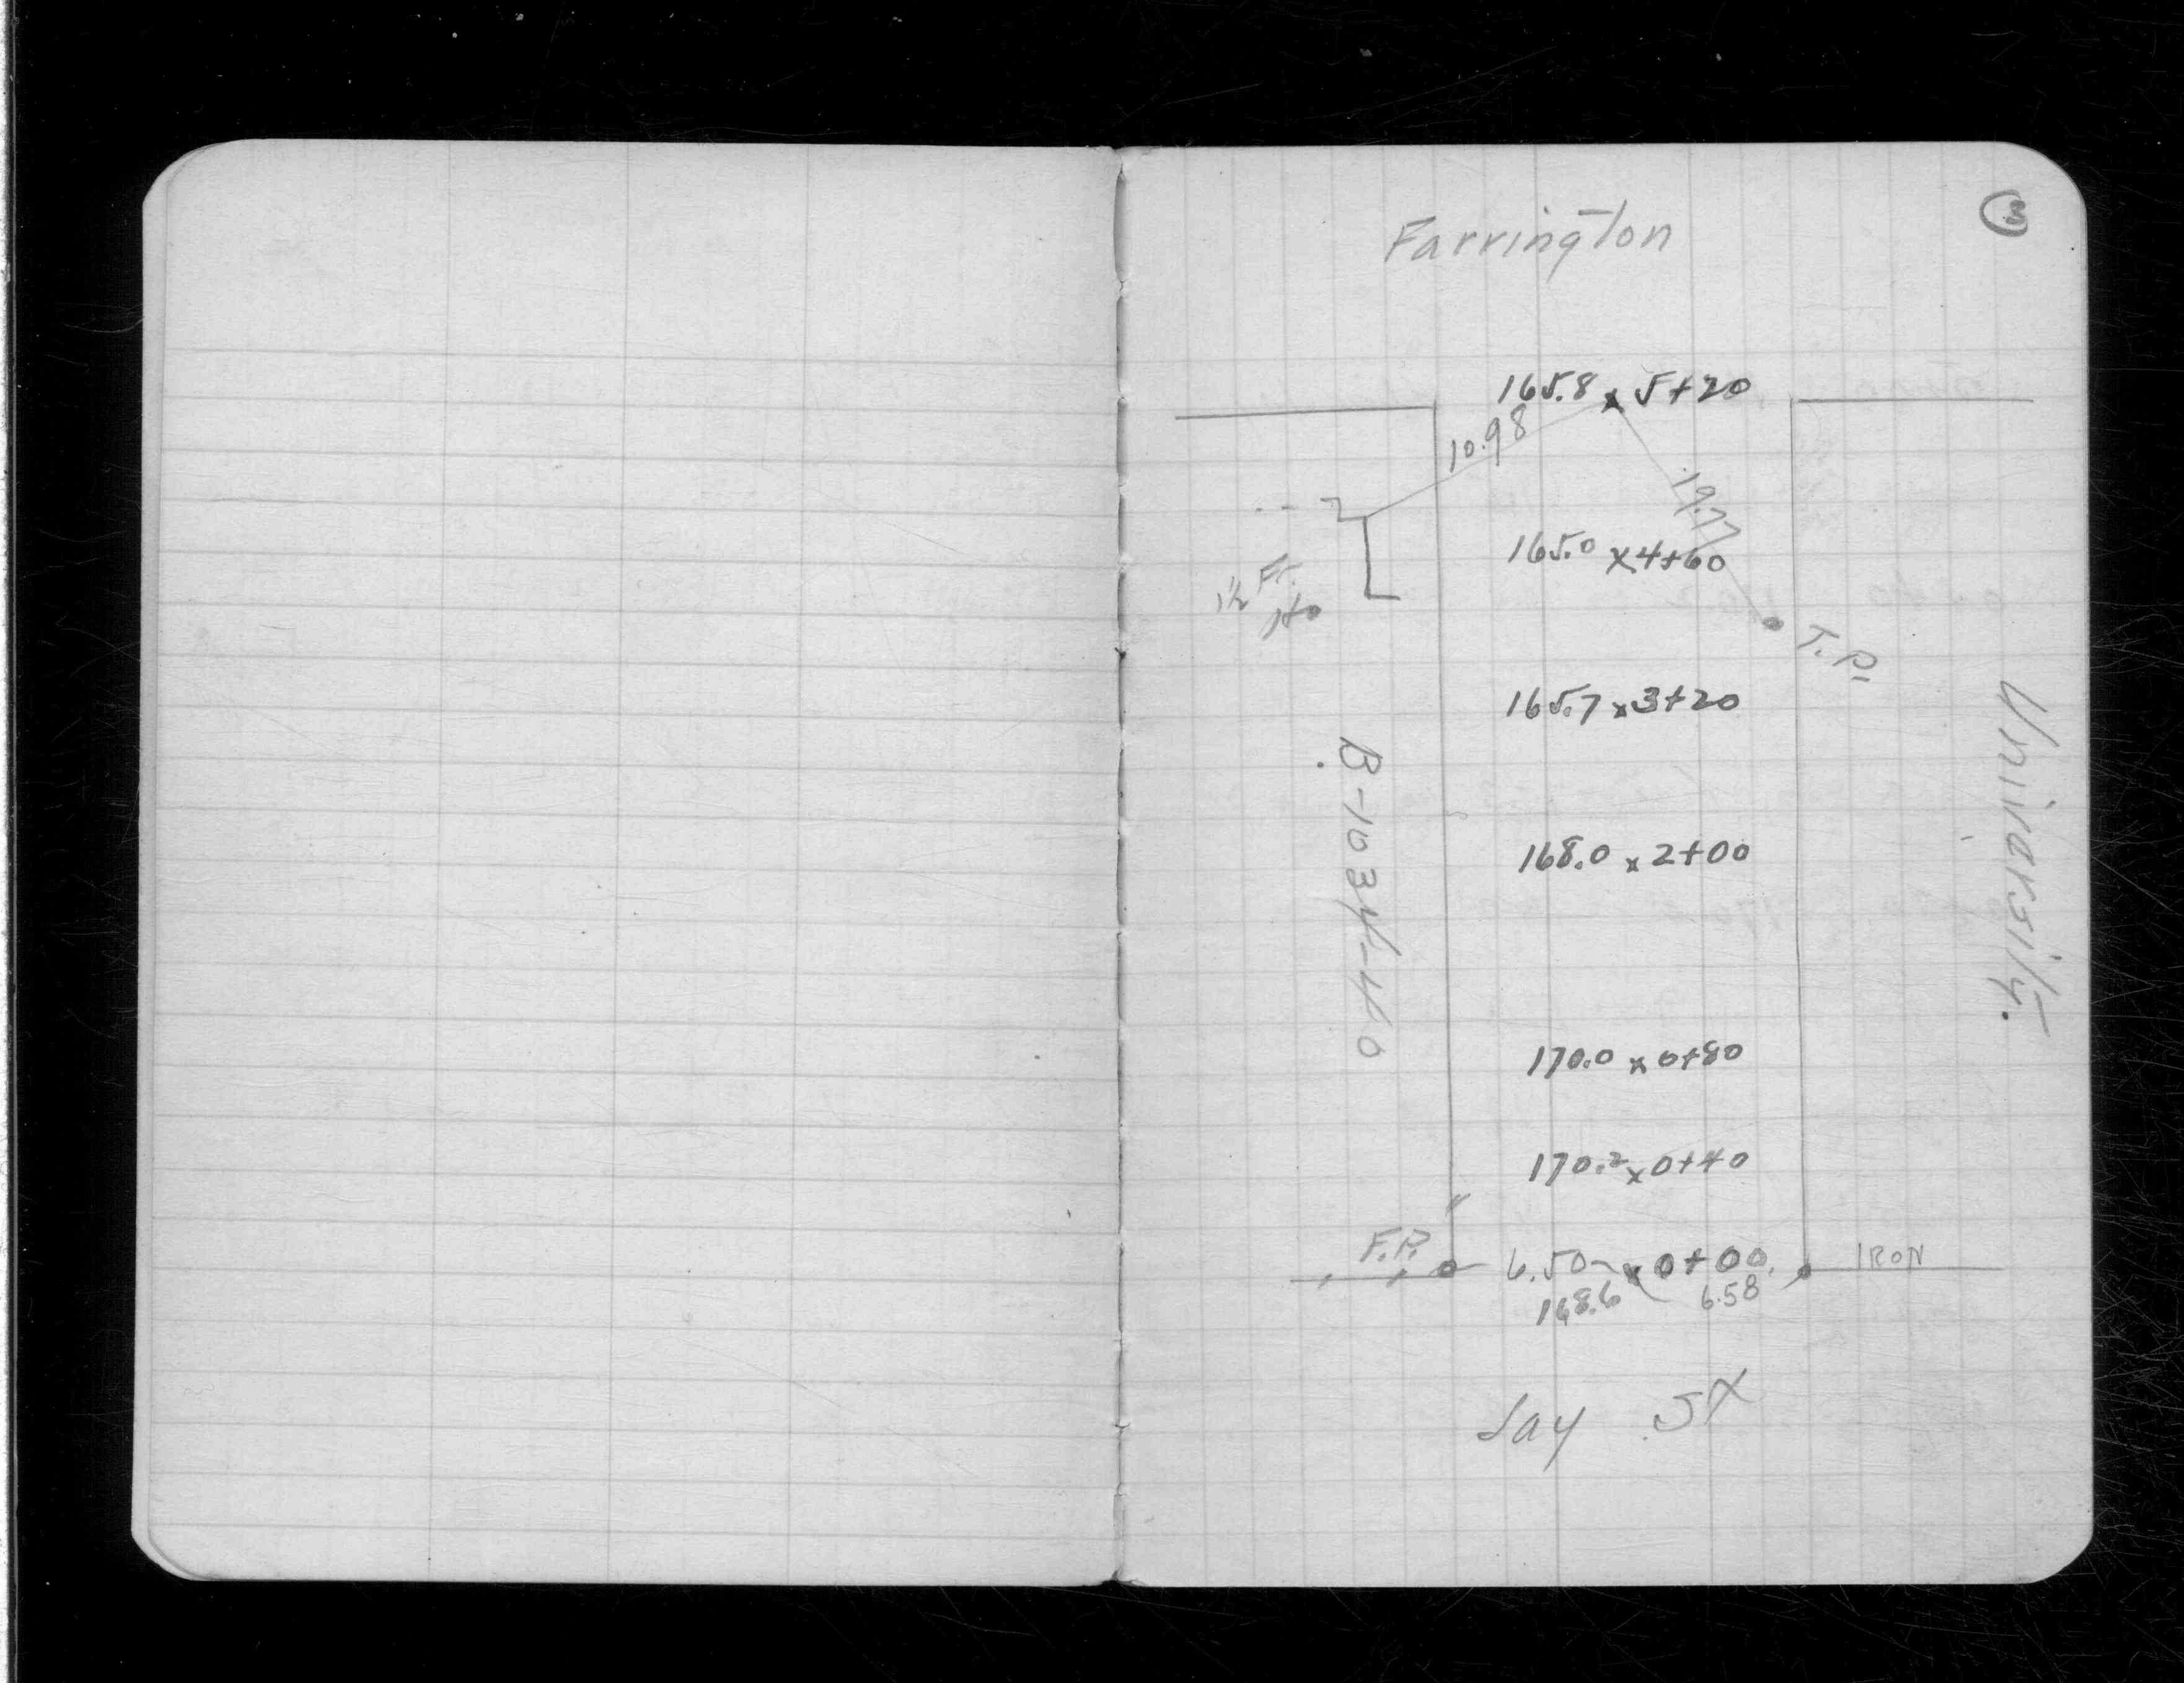 3
Farrington
165.8 x 5+20
10.98
19.77
165.0 x 4+60
1½ Fr.
Ho
T.P.
165.7 x 3+20
University.
B-1034-40
168.0 x 2+00
170.0 x 0+80
170.2 x 0+40
F.P. 6.50 x 0+00 IRON
168.6 6.58
Jay St